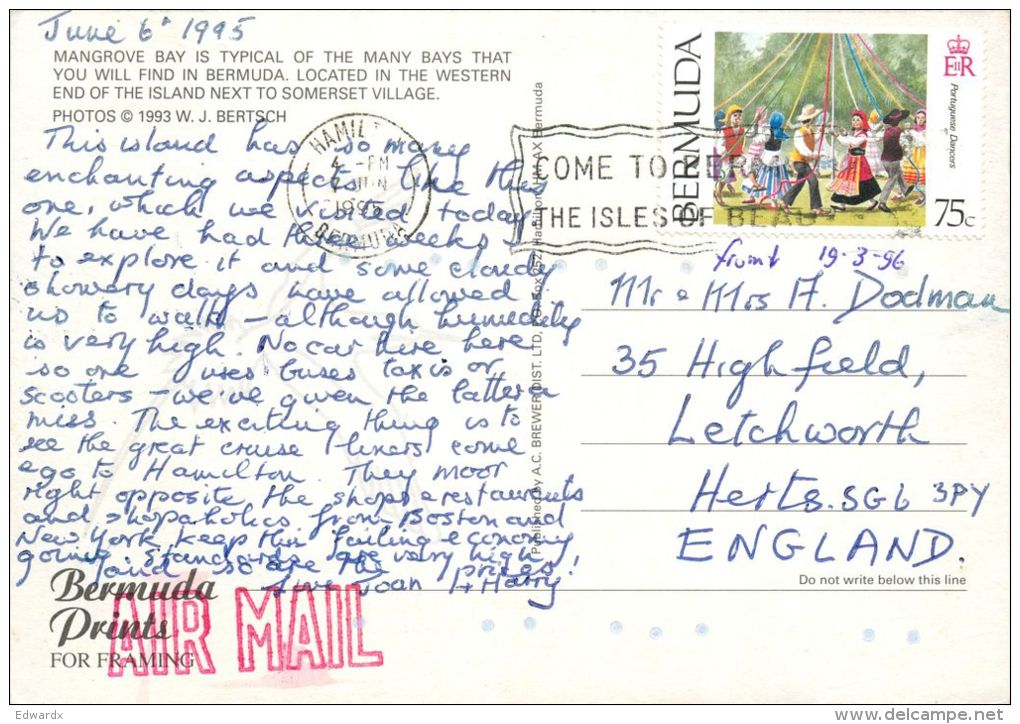 June 6th 1995
MANGROVE BAY IS TYPICAL OF THE MANY BAYS THAT
YOU WILL FIND IN BERMUDA. LOCATED IN THE WESTERN
END OF THE ISLAND NEXT TO SOMERSET VILLAGE.
PHOTOS © 1993 W. J. BERTSCH
This island has so many
enchanting aspects like this
one, which we visited today.
We have had three weeks
to explore it and some cloudy
showery days have allowed
us to walk - although humidity
is very high. No car hire here
so one uses buses taxis or
scooters - we've given the latter a
miss. The exciting thing is to
see the great cruise liners come
& go to Hamilton. They moor
right opposite the shops & restaurants
and shopaholics from Boston and
New York keep this failing economy
going. Standards are very high,
and so are the prices!
Love Joan & Harry
Bermuda
Prints
FOR FRAMING
AIR MAIL
HAMILTON
PM
1995
BERMUDA
COME TO BERMUDA
THE ISLES OF BEAUTY
Published by A.C. BREWER DIST. LTD, P.O. Box Hamilton HM AX Bermuda
BERMUDA
EIIR
Portuguese Dancers
75c
19-3-96
Mr & Mrs A. Dodman
35 Highfield,
Letchworth
Herts. SG6 3PY
ENGLAND.
Do not write below this line
Edwardx
www.delcampe.net